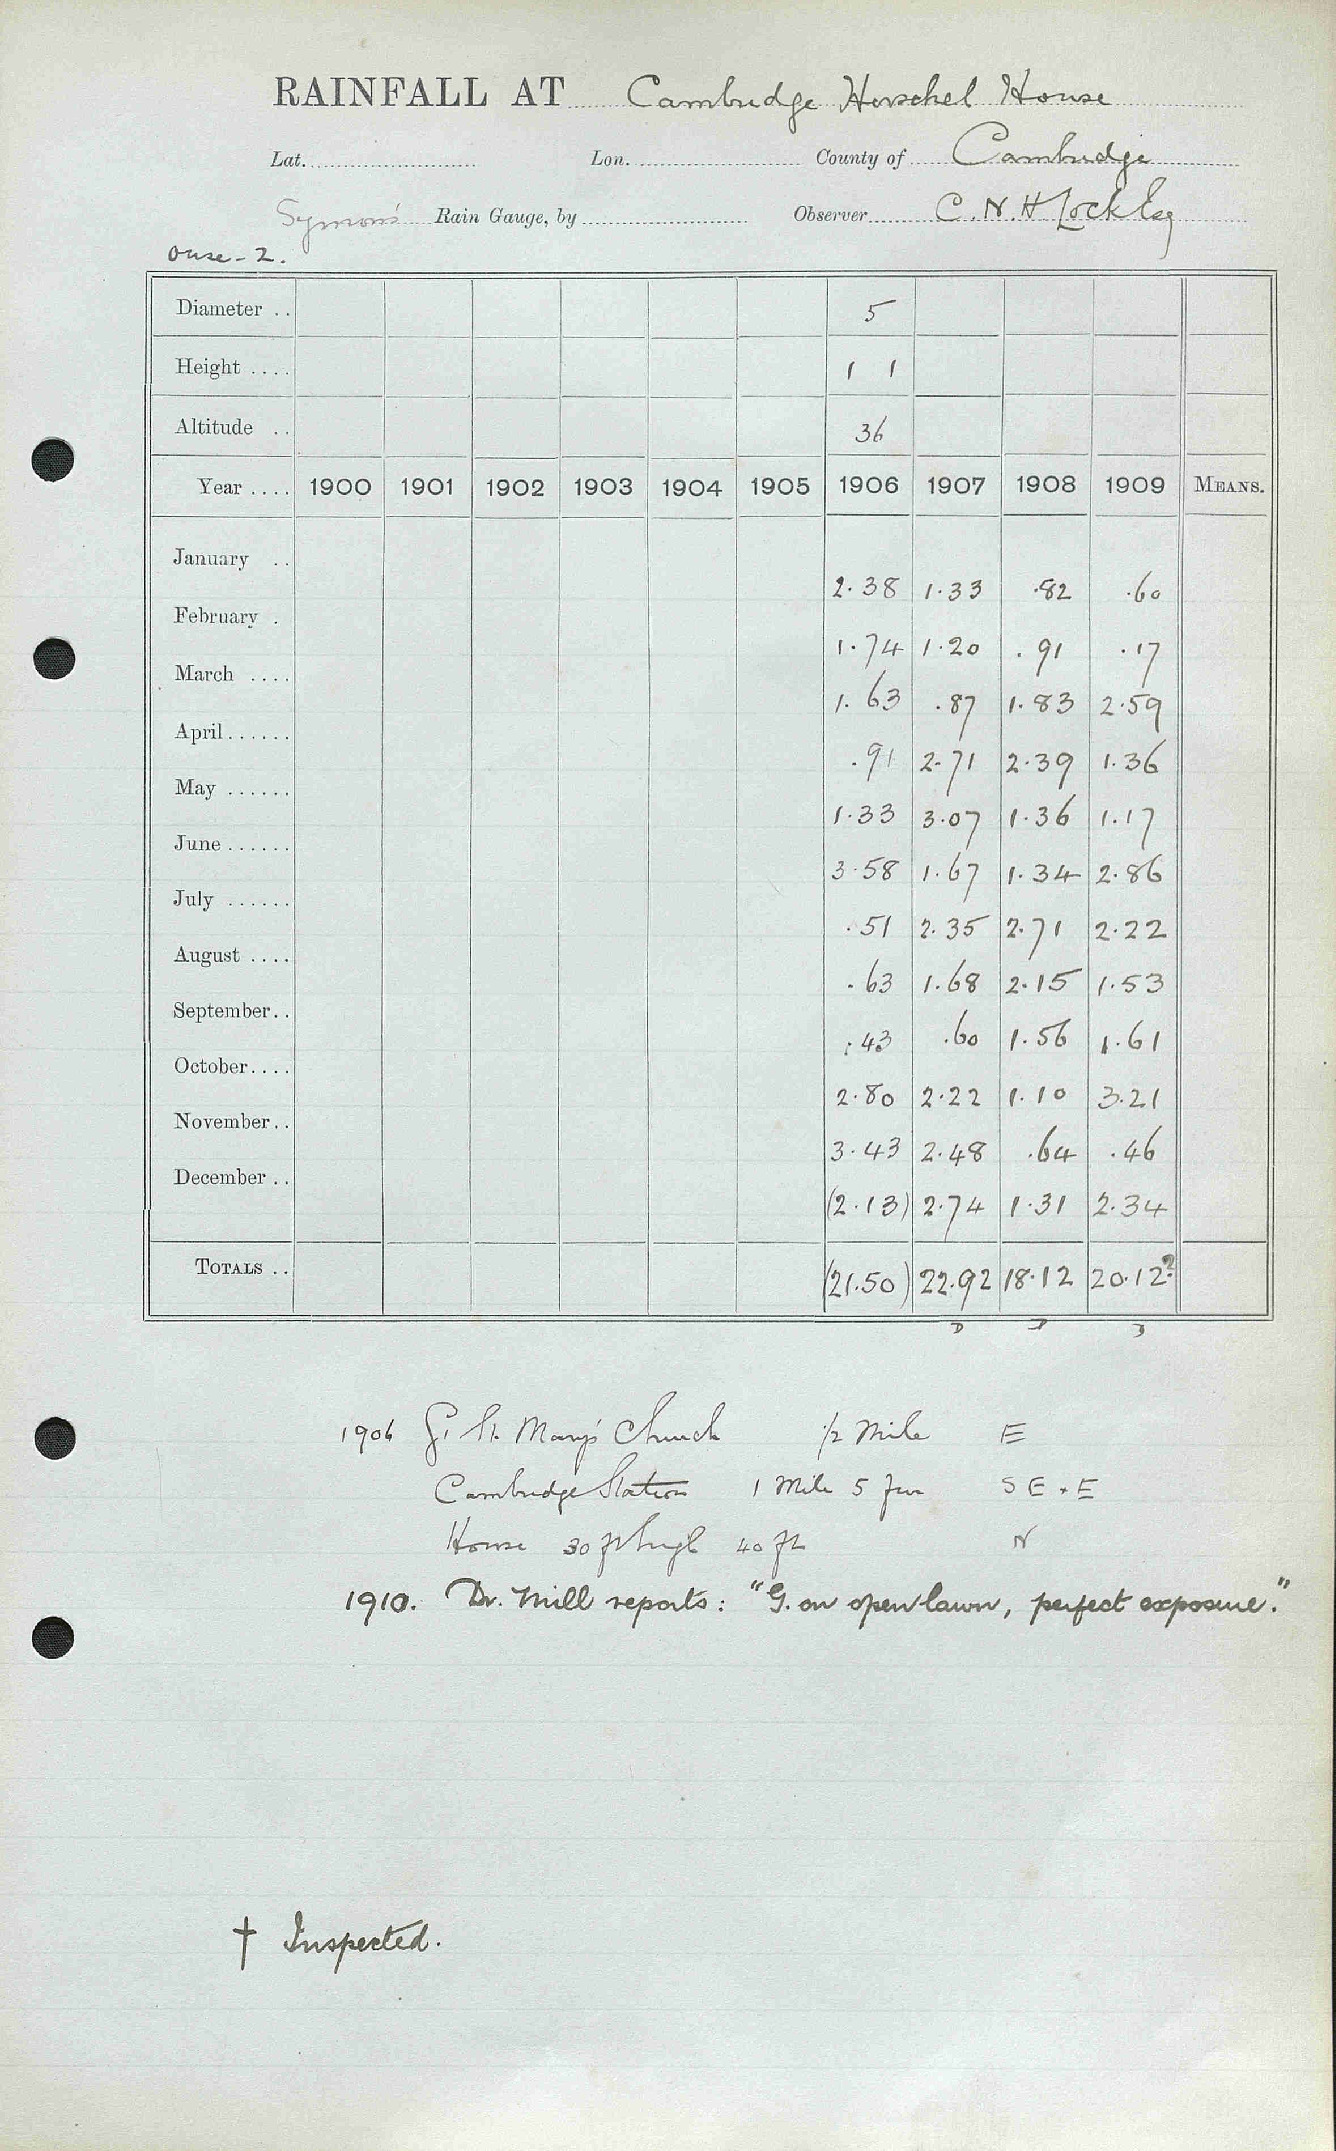 RAINFALL AT Cambridge Herschel House
Lat. Lon. County of Cambridge
Symons's Rain Gauge, by Observer C. N. H Lock Esq
Ouse - 2.
Diameter .. 5
Height .... 1 1
Altitude .. 36
Year .... 1900 1901 1902 1903 1904 1905 1906 1907 1908 1909 MEANS.
January .. 2.38 1.33 .82 .60
February . 1.74 1.20 .91 .17
March .... 1.63 .87 1.83 2.59
April...... .91 2.71 2.39 1.36
May ...... 1.33 3.07 1.36 1.17
June...... 3.58 1.67 1.34 2.86
July ...... .51 2.35 2.71 2.22
August .... .63 1.68 2.15 1.53
September.. .43 .60 1.56 1.61
October.... 2.80 2.22 1.10 3.21
November.. 3.43 2.48 .64 .46
December .. (2.13) 2.74 1.31 2.34
TOTALS .. (21.50) 22.92 18.12 20.12?
1906 Gt St. Mary's Church 1/2 Mile E
Cambridge Station 1 Mile 5 fur S E . E
House 30 ft high 40 ft N
1910. Dr. Mill reports: "G. on open lawn, perfect exposure."
† Inspected.